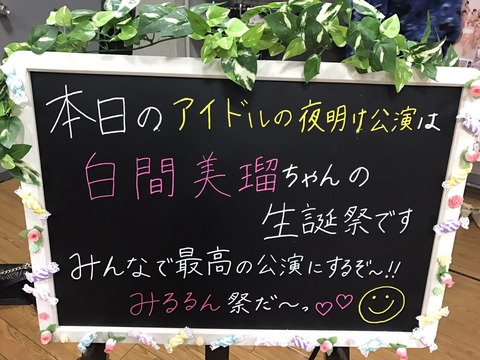 本日のアイドルの夜明け公演は
白間美瑠ちゃんの
生誕祭です
みんなで最高の公演にするぞ〜!!
みるるん祭だ〜っ♡♡